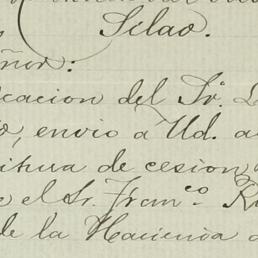 Silao.
ñor:
cacion del Sr.
envio a Ud. a
itura de cesion
e el Sr. Franco.
de la Hacienda